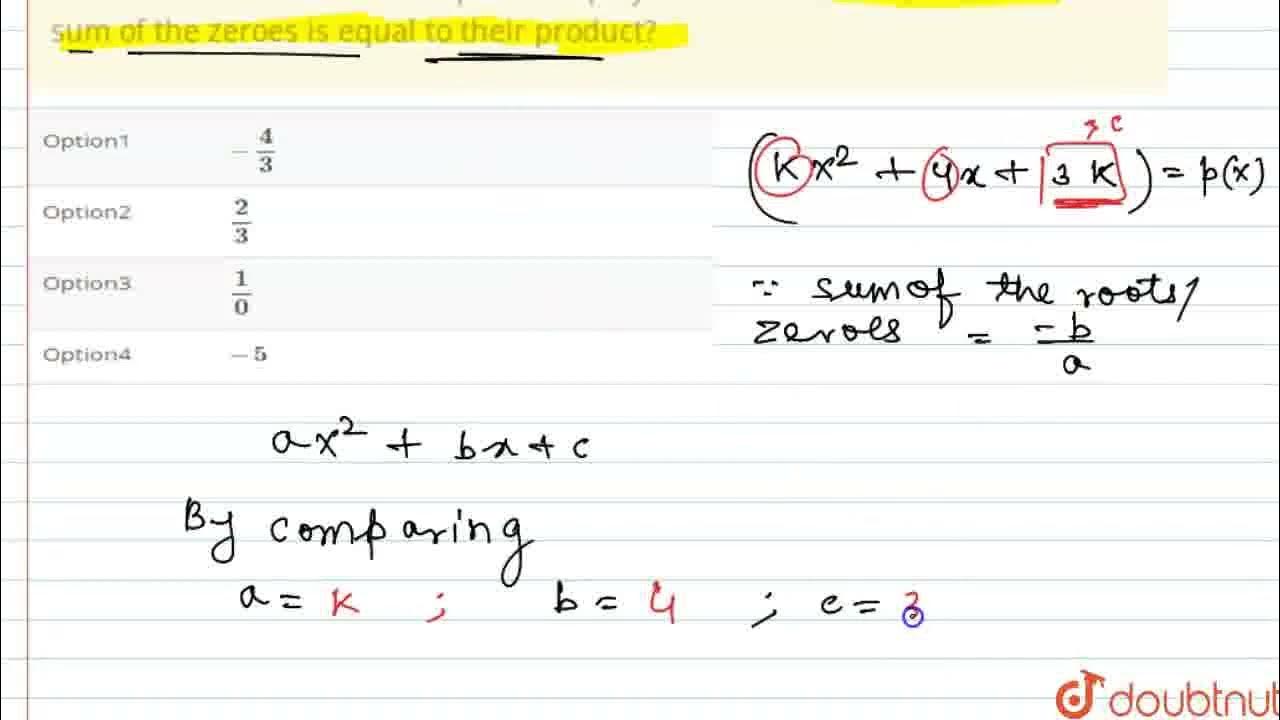 sum of the zeroes is equal to their product?
Option1 -4/3
Option2 2/3
Option3 1/0
Option4 -5
c
(kx² + 4x + 3 K) = p(x)
∵ sum of the roots/
zeroes = -b/a
ax² + bx + c
By comparing
a = K ; b = 4 ; c = 3
doubtnut